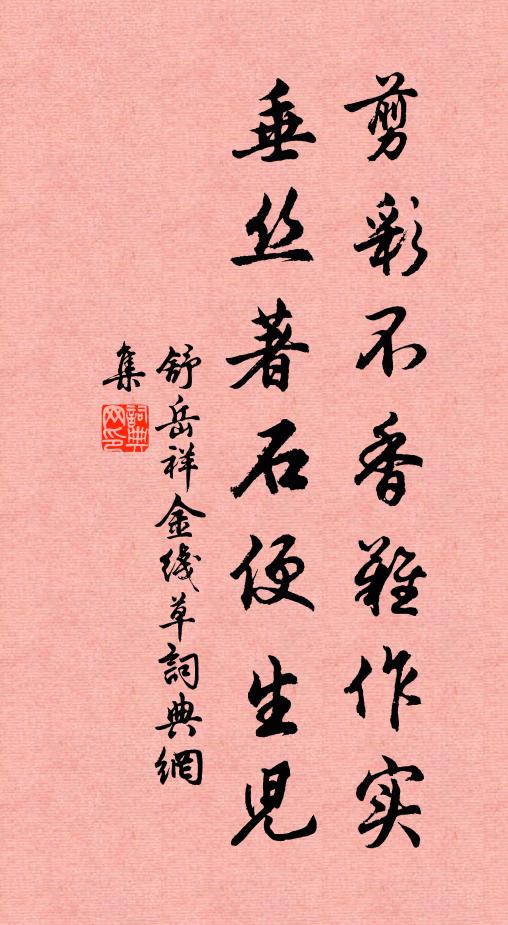 剪彩不香難作实
垂丝著石便生児
舒岳祥金线草詞典網
集
詞典網印